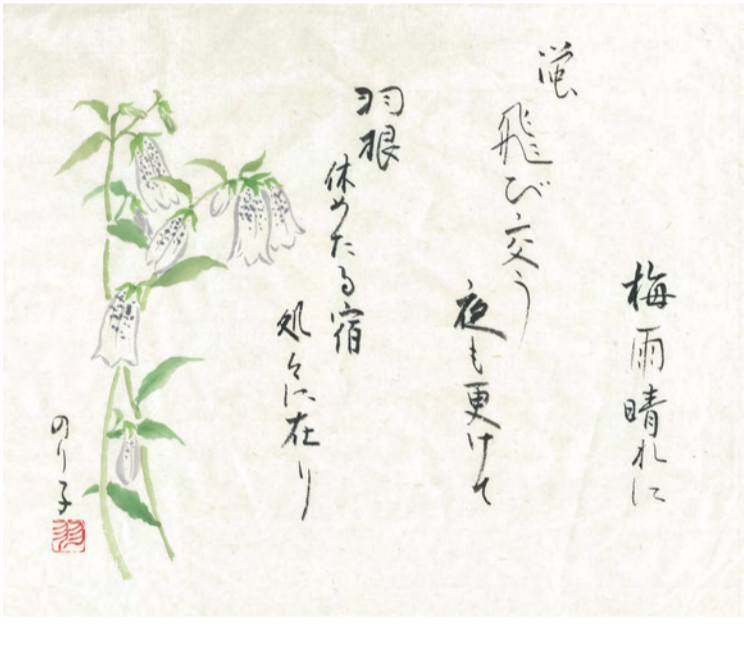 梅雨晴れに
蛍
飛び交う
夜も更けて
羽根
休めたる宿
処々に在り
のり子